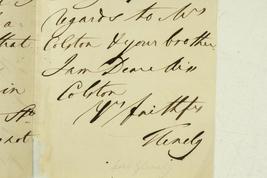 regards to Mrs
that Colston & your brother.
I am Dear Miss
in Colston
Yrs faithfy
not